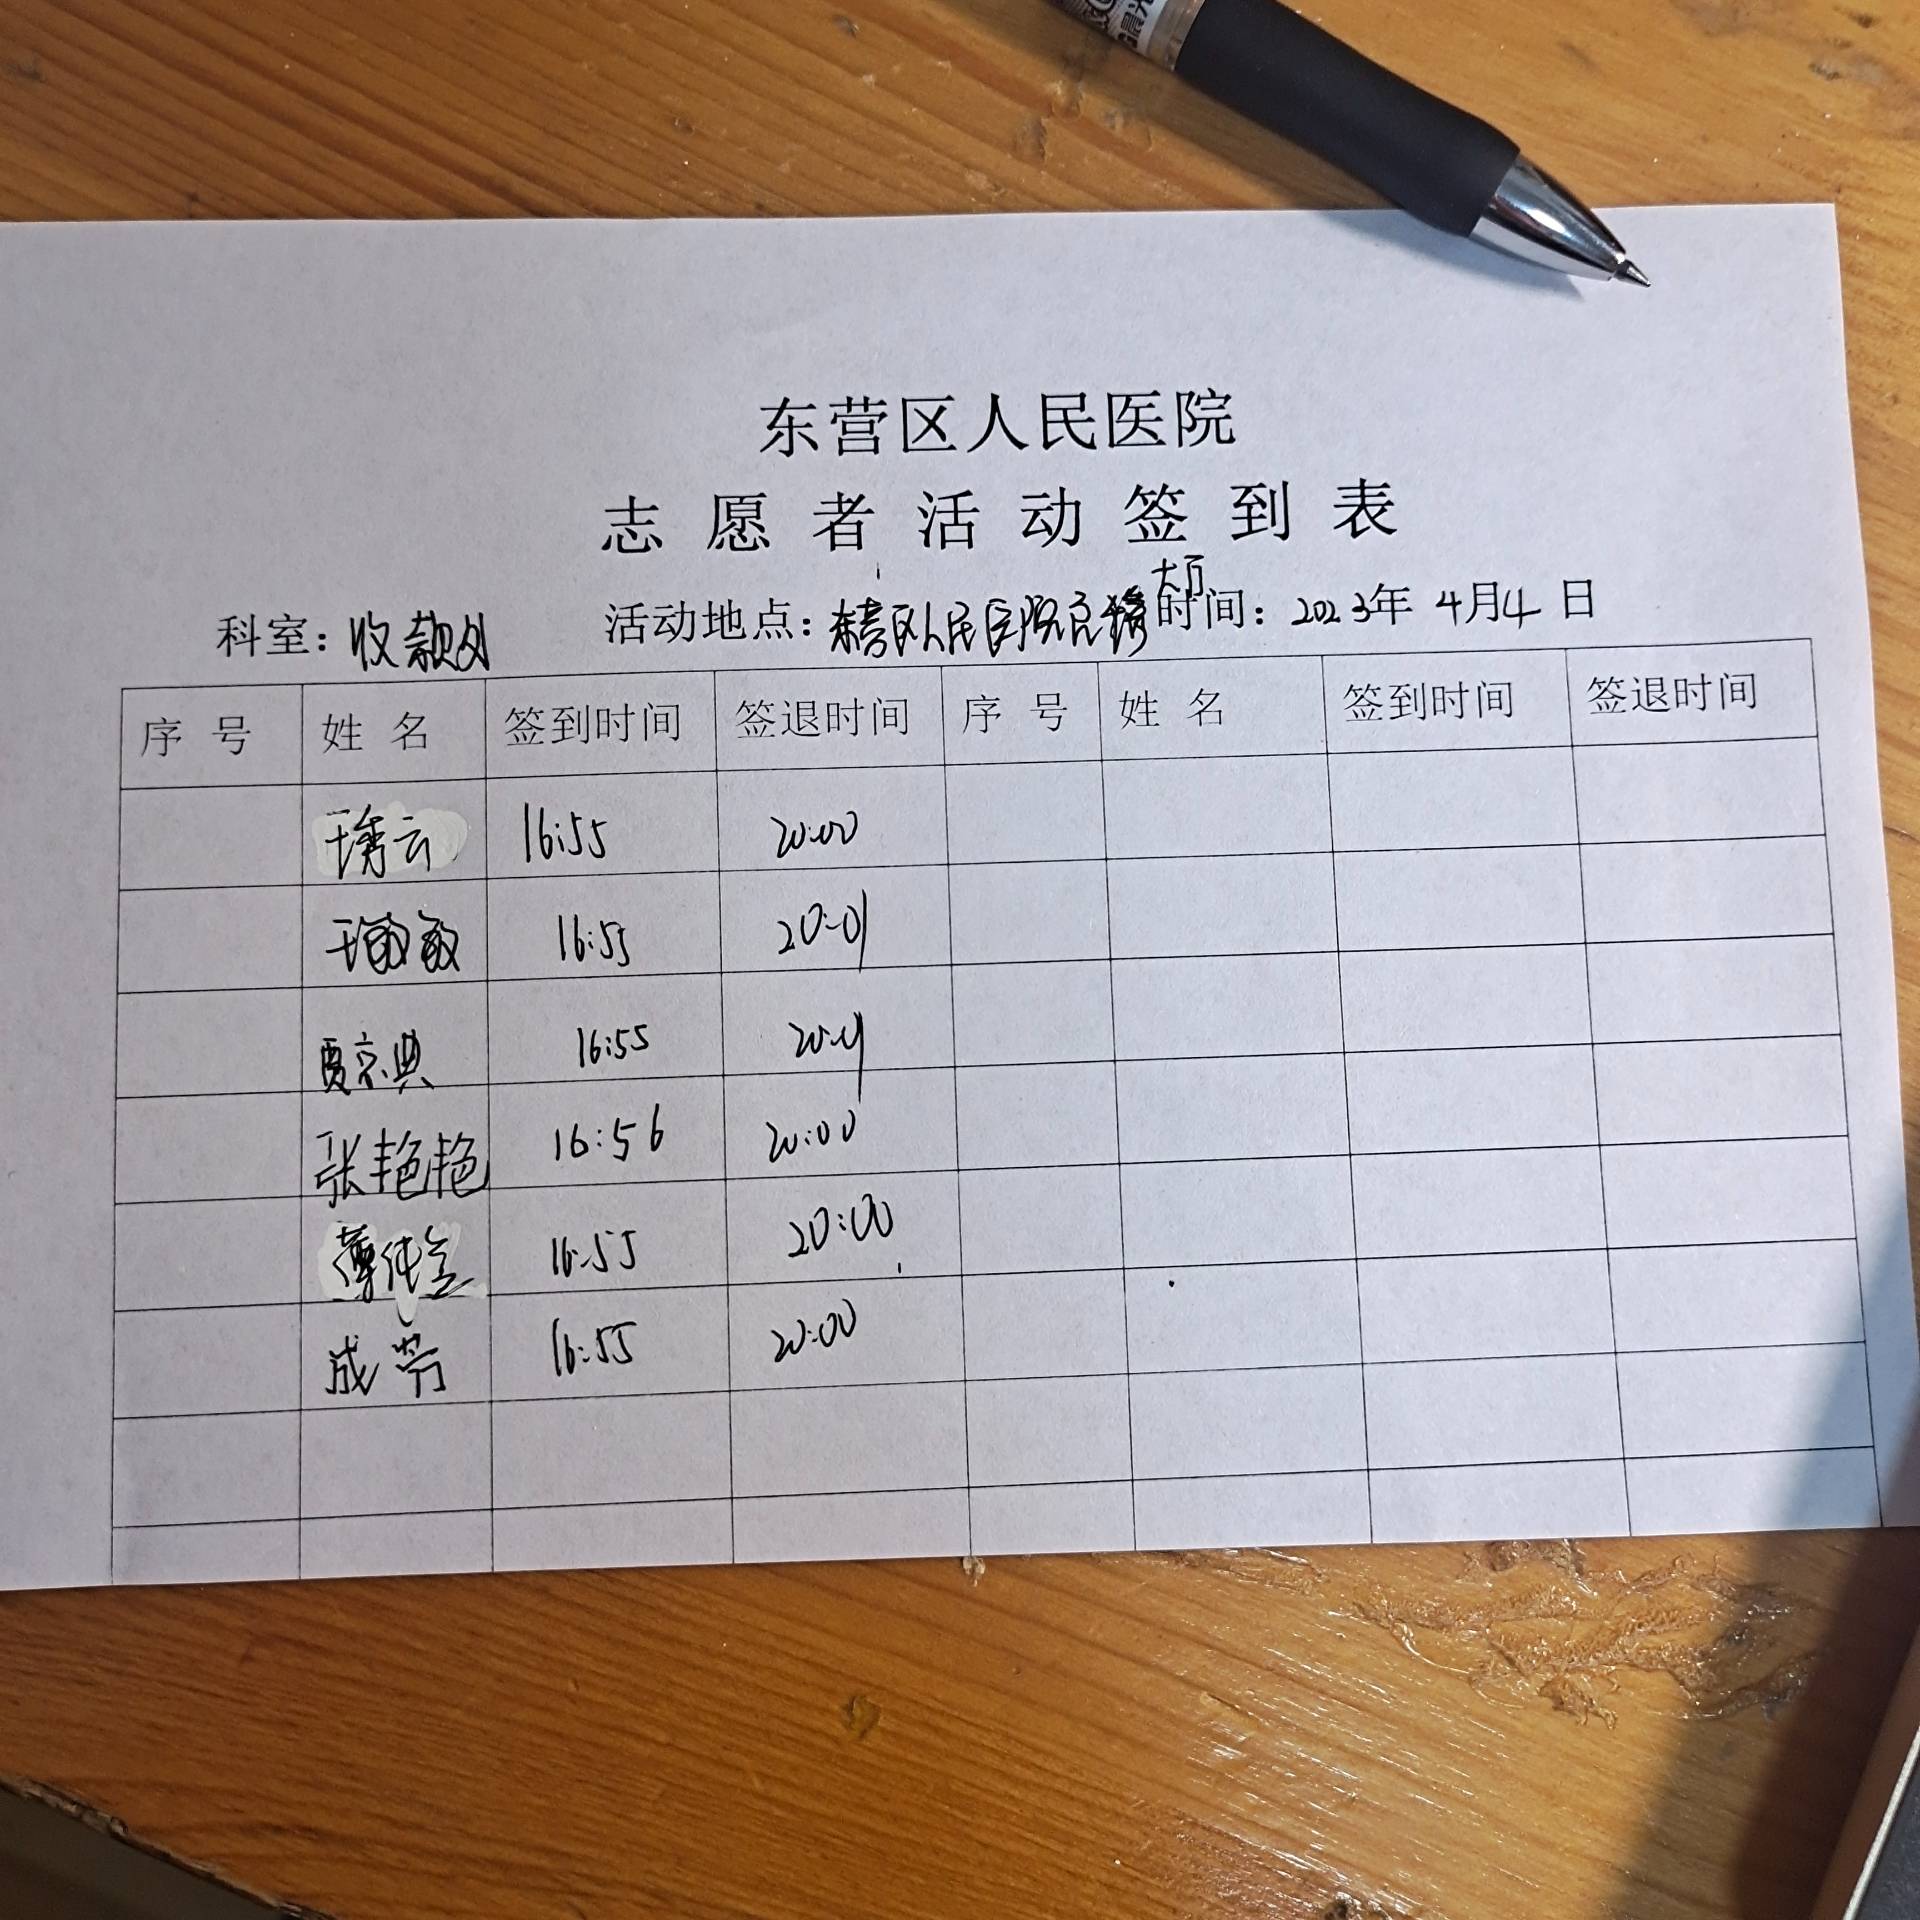 东营区人民医院
志愿者活动签到表
科室：收款处 活动地点：东营区人民医院门诊大厅 时间：2023年4月4日
序号 姓名 签到时间 签退时间 序号 姓名 签到时间 签退时间
16:55 20:00
16:55 20:01
贾京典 16:55 20:01
张艳艳 16:56 20:00
16:55 20:00
成芳 16:55 20:00